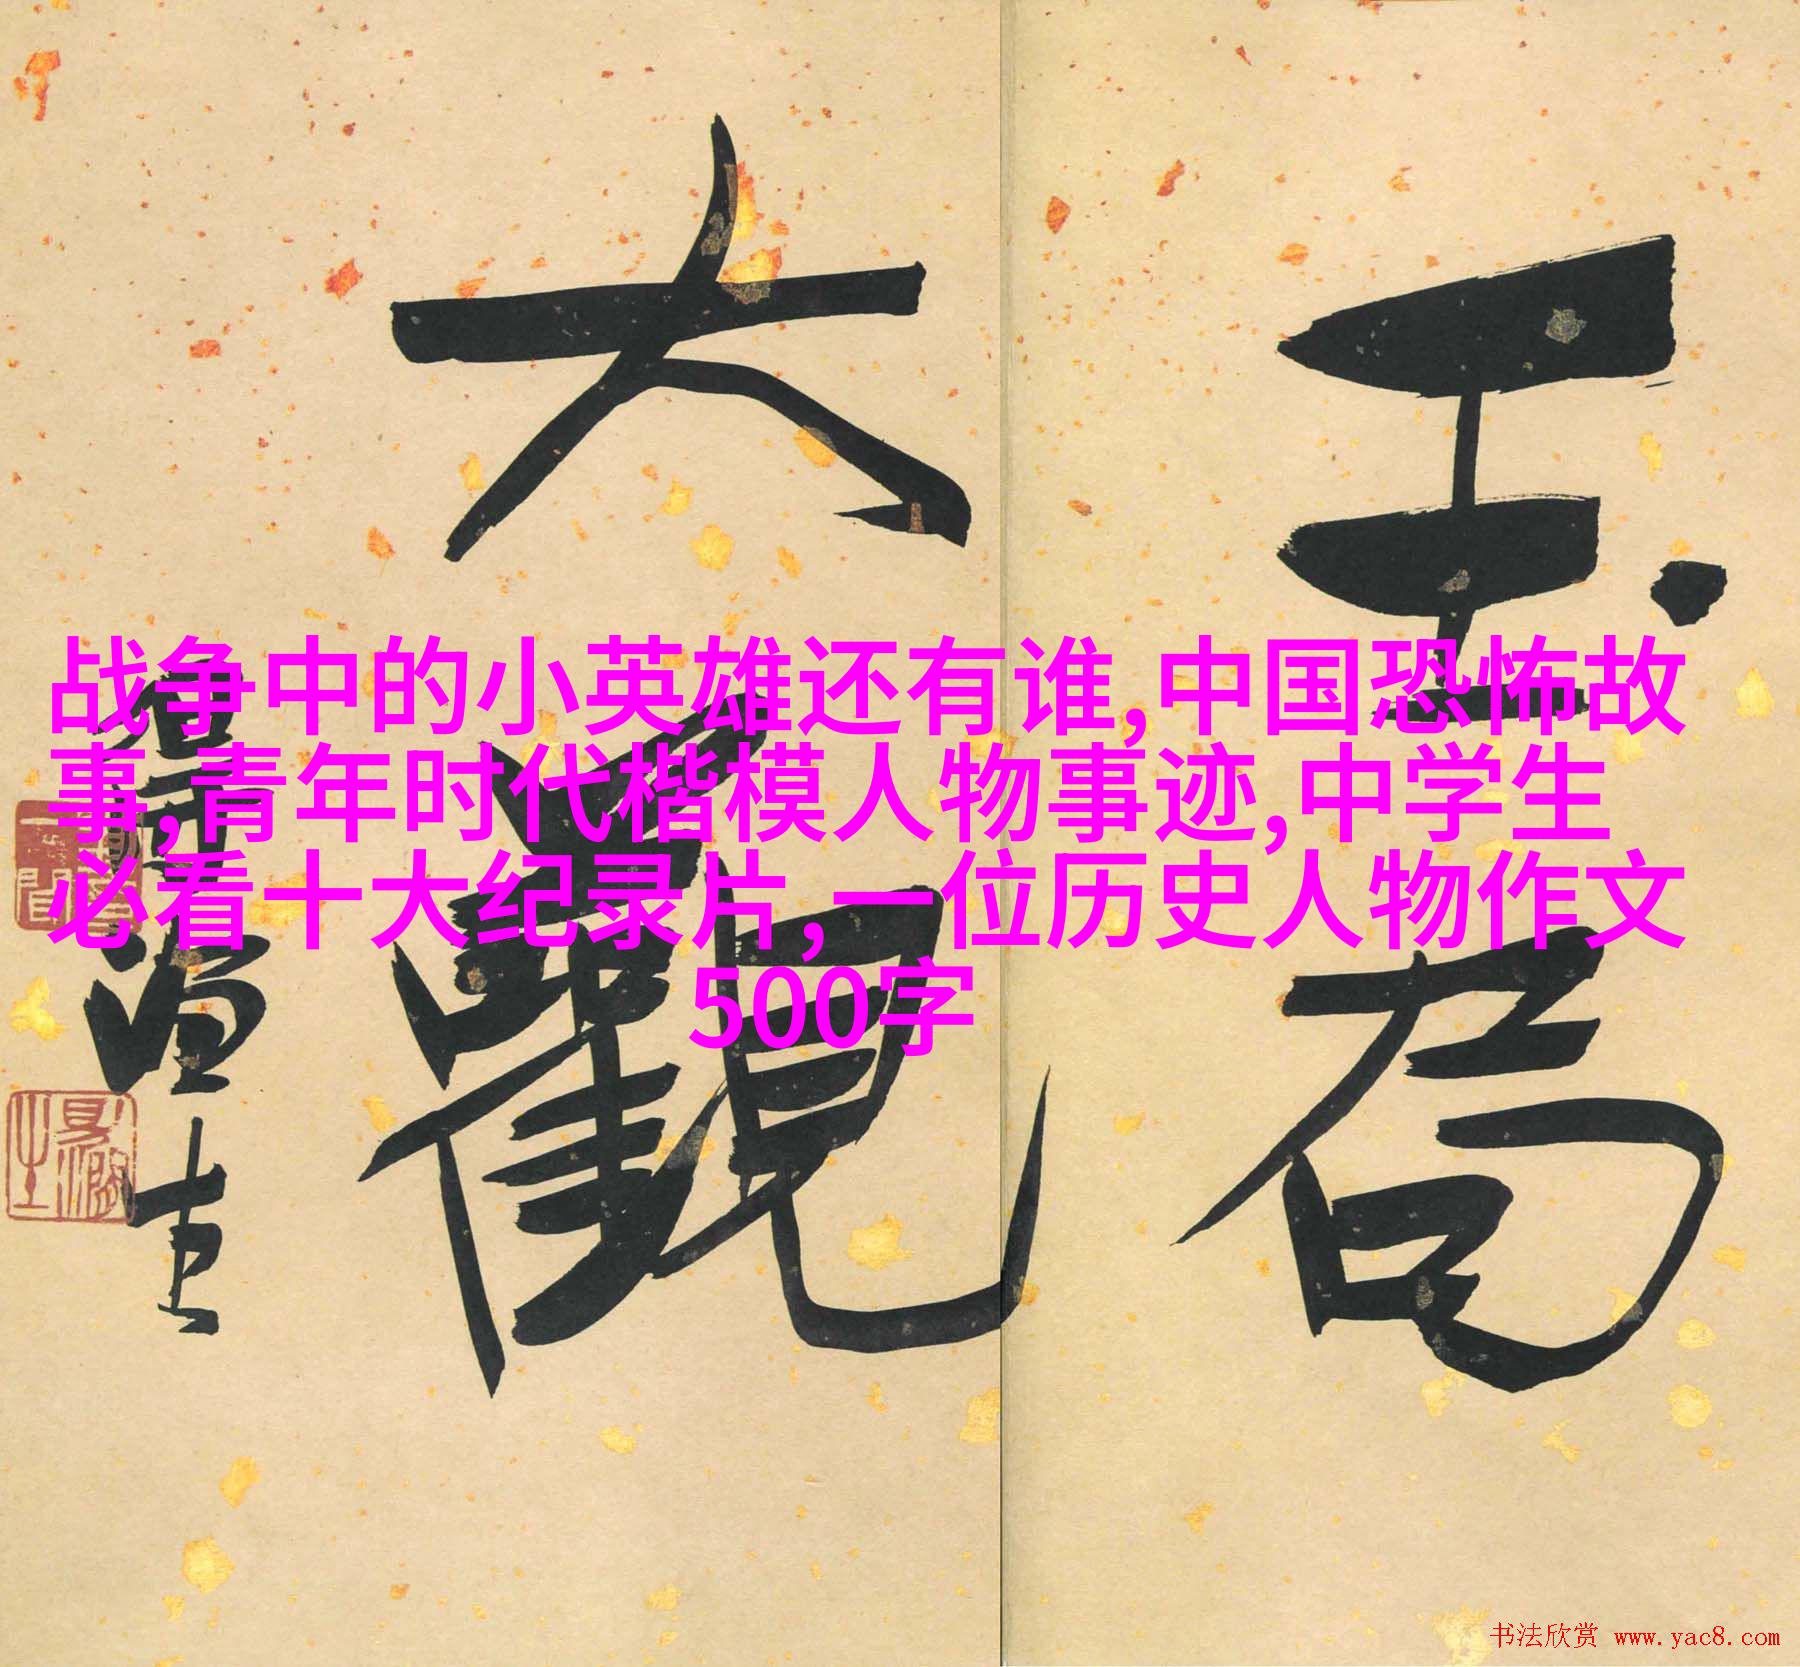 玉局
大觀
战争中的小英雄还有谁,中国恐怖故
事,青年时代楷模人物事迹,中学生
必看十大纪录片,一位历史人物作文
500字
书法欣赏 www.yac8.com